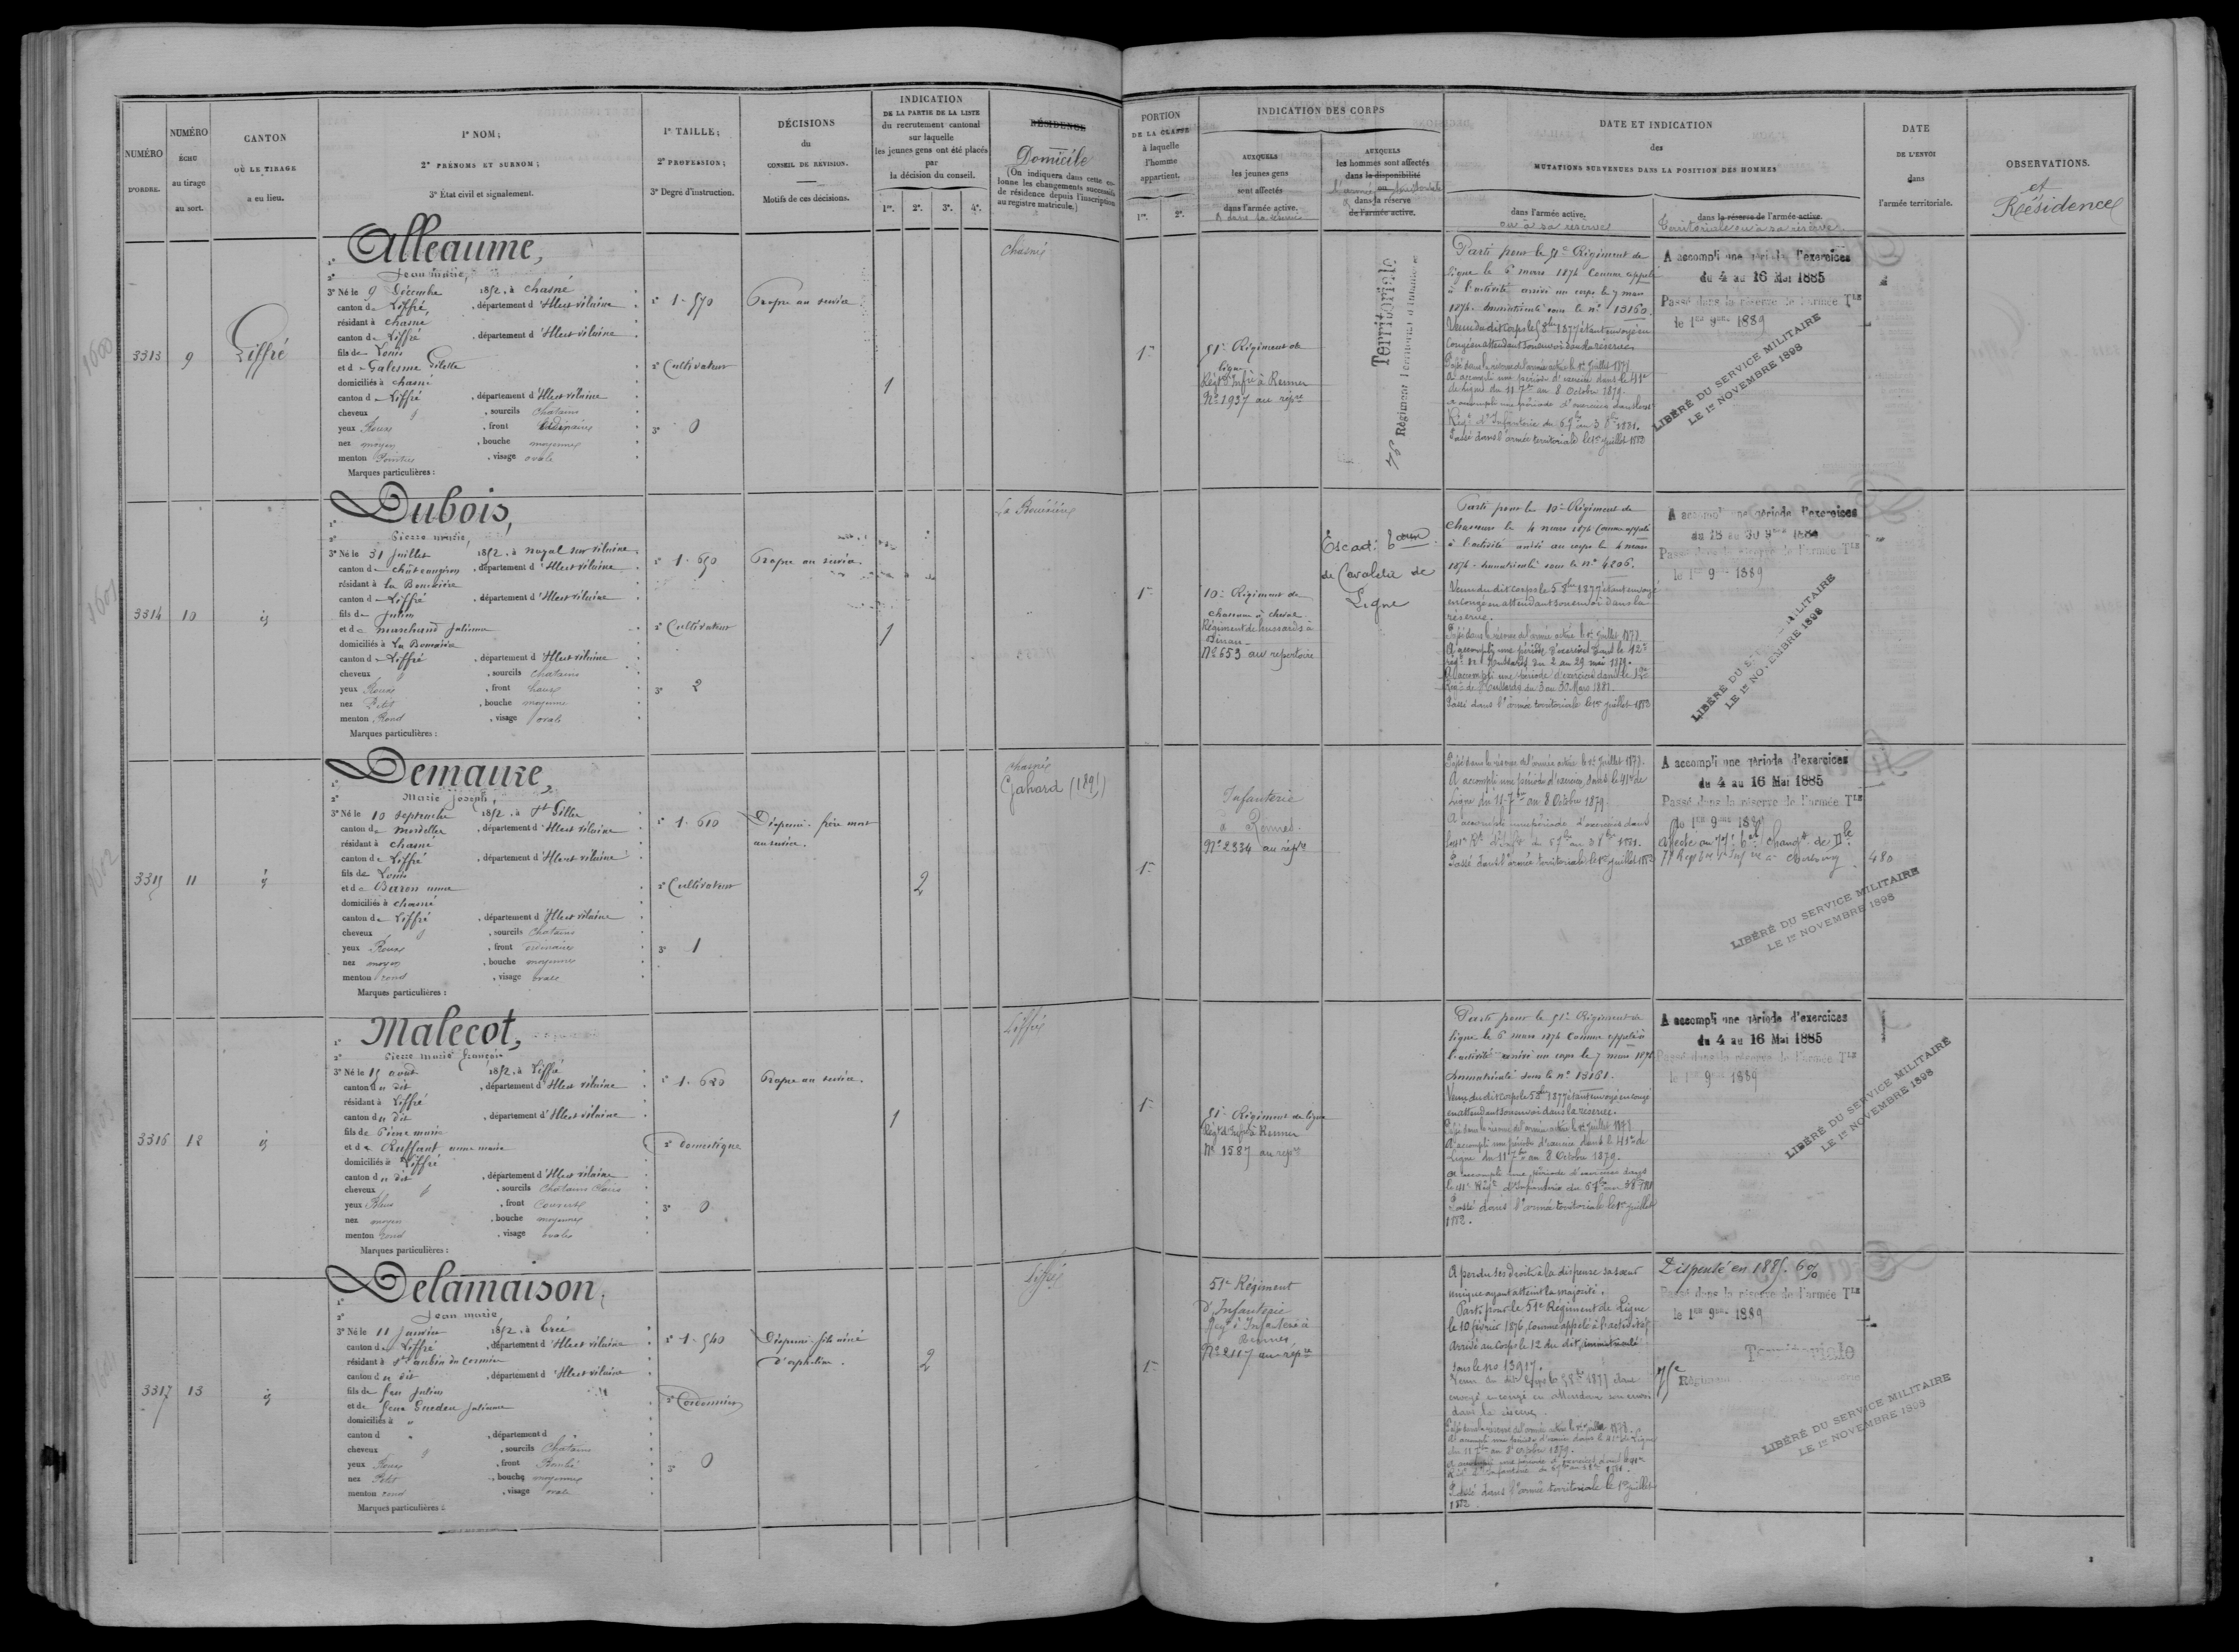 NUMÉRO
D'ORDRE.
NUMÉRO
ÉCHU
au tirage
au sort.
CANTON
OÙ LE TIRAGE
a eu lieu.
1° NOM;
2° PRÉNOMS ET SURNOM;
3° État civil et signalement.
1° TAILLE;
2° PROFESSION;
3° Degré d'instruction.
DÉCISIONS
du
CONSEIL DE RÉVISION.
Motifs de ces décisions.
INDICATION
DE LA PARTIE DE LA LISTE
du recrutement cantonal
sur laquelle
les jeunes gens ont été placés
par
la décision du conseil.
1re. 2e. 3e. 4e.
RÉSIDENCE
Domicile
(On indiquera dans cette co-
lonne les changements successifs
de résidence depuis l'inscription
au registre matricule.)
PORTION
DE LA CLASSE
à laquelle
l'homme
appartient.
1re. 2e.
INDICATION DES CORPS
AUXQUELS
les jeunes gens
sont affectés
dans l'armée active.
& dans sa réserve
AUXQUELS
les hommes sont affectés
dans la disponibilité
ou
l'armée territoriale
dans la réserve
de l'armée active.
DATE ET INDICATION
des
MUTATIONS SURVENUES DANS LA POSITION DES HOMMES
dans l'armée active.
ou à sa réserve
dans la réserve de l'armée active.
Territoriale ou à sa réserve
DATE
DE L'ENVOI
dans
l'armée territoriale.
OBSERVATIONS.
et
Résidence
3313
9
Liffré
1° Alleaume,
2° Jean marie,
3° Né le 9 Décembre 1852, à Chasné
canton de Liffré, département d'Ille et vilaine
résidant à Chasné
canton de Liffré, département d'Ille et vilaine
fils de Louis
et de Galesne Gilette
domiciliés à Chasné
canton de Liffré, département d'Ille et vilaine
cheveux, sourcils Chatains
yeux Roux, front Ordinaire
nez moyen, bouche moyenne
menton Pointu, visage ovale
Marques particulières :
1° 1.570
2° Cultivateur
3° 0
Propre au service
1
Chasné
1re
51e Régiment de
ligne
Régt d'Infie à Rennes
No 1937 au répre
Territoriale
76 Régiment Territorial d'Infanterie
Parti pour le 51e Régiment de
ligne le 6 mars 1874 Comme appelé
à l'activité arrivé au corps le 7 mars
1874. Immatriculé sous le no 13160.
Venu du dit Corps le 5 8bre 1877 étant envoyé en
congé en attendant son envoi dans la réserve.
Passé dans la réserve de l'armée active le 1er Juillet 1878
A accompli une période d'exercice dans le 41e
de ligne du 11 7bre au 8 Octobre 1879.
A accompli une période d'exercices dans le
Régt d'Infanterie du 6 7bre au 3 8bre 1881.
Passé dans l'armée territoriale le 1er Juillet 1882
A accompli une période d'exercices
du 4 au 16 Mai 1885
Passé dans la réserve de l'armée Tle
le 1er 9bre 1889
LIBÉRÉ DU SERVICE MILITAIRE
LE 1er NOVEMBRE 1898
3314
10
id
1° Dubois,
2° Pierre marie,
3° Né le 31 Juillet 1852, à noyal sur vilaine
canton de Châteaugiron, département d'Ille et vilaine
résidant à La Bouëxière
canton de Liffré, département d'Ille et vilaine
fils de Julien
et de marchand Julienne
domiciliés à La Bouëxière
canton de Liffré, département d'Ille et vilaine
cheveux, sourcils Chatains
yeux Roux, front haut
nez Petit, bouche moyenne
menton Rond, visage ovale
Marques particulières :
1° 1.650
2° Cultivateur
3° 2
Propre au service.
1
La Bouëxière
1re
10e Régiment de
chasseurs à cheval
Régiment de hussards à
Dinan
No 653 au répertoire
Escad:
de Cavalerie de
Ligne
Parti pour le 10e Régiment de
Chasseurs le 4 mars 1874 Comme appelé
à l'activité arrivé au corps le 6 mars
1874. Immatriculé sous le no 4206.
Venu du dit corps le 5 8bre 1877 étant envoyé
en congé en attendant son envoi dans la
réserve.
Passé dans la réserve de l'armée active le 1er Juillet 1878
A accompli une période d'exercices dans le 12e
régt de Hussards du 2 au 29 mai 1879.
A accompli une période d'exercice dans le 12e
Régt de Hussards du 3 au 30 Mars 1881.
Passé dans l'armée territoriale le 1er Juillet 1882
A accompli une période d'exercices
du 18 au 30 9bre 1884
Passé dans la réserve de l'armée Tle
le 1er 9bre 1889
LIBÉRÉ DU SERVICE MILITAIRE
LE 1er NOVEMBRE 1898
3315
11
id
1° Demaure,
2° Marie Joseph,
3° Né le 10 septembre 1852, à St Gilles
canton de Mordelles, département d'Ille et vilaine
résidant à Chasné
canton de Liffré, département d'Ille et vilaine
fils de Louis
et de Baron anne
domiciliés à Chasné
canton de Liffré, département d'Ille et vilaine
cheveux, sourcils Chatains
yeux Roux, front ordinaire
nez moyen, bouche moyenne
menton rond, visage ovale
Marques particulières :
1° 1.610
2° Cultivateur
3° 1
Dispensé. frère mort
au service.
2
Chasné
Gahard (1891)
1re
Infanterie
à Rennes.
No 2334 au répre
Passé dans la réserve de l'armée active le 1er Juillet 1878.
A accompli une période d'exercices dans le 41e de
Ligne du 11 7bre au 8 Octobre 1879.
A accompli une période d'exercices dans
le Rt d'Infie du 6 7bre au 3 8bre 1881.
Passé dans l'armée territoriale le 1er Juillet 1882
A accompli une période d'exercices
du 4 au 16 Mai 1885
Passé dans la réserve de l'armée Tle
le 1er 9bre 1889
480
LIBÉRÉ DU SERVICE MILITAIRE
LE 1er NOVEMBRE 1898
3316
12
id
1° Malecot,
2° Pierre marie françois
3° Né le 15 août 1852, à Liffré
canton du dit, département d'Ille et vilaine
résidant à Liffré
canton du dit, département d'Ille et vilaine
fils de Pierre marie
et de Ruffaut anne marie
domiciliés à Liffré
canton du dit, département d'Ille et vilaine
cheveux, sourcils Chatains Clairs
yeux Bleus, front Couvert
nez moyen, bouche moyenne
menton rond, visage ovale
Marques particulières :
1° 1.620
2° Domestique
3° 0
Propre au service.
1
Liffré
1re
51e Régiment de ligne
Régt d'Infie à Rennes
No 1587 au répre
Parti pour le 51e Régiment de
ligne le 6 mars 1874 Comme appelé à
l'activité arrivé au corps le 7 mars 1874
Immatriculé sous le no 13161.
Venu du dit corps le 5 8bre 1877 étant envoyé en congé
en attendant son envoi dans la réserve.
Passé dans la réserve de l'armée active le 1er Juillet 1878
A accompli une période d'exercice dans le 41e de
Ligne du 11 7bre au 8 Octobre 1879.
A accompli une période d'exercices dans
le Régt d'Infanterie du 6 7bre au 3 8bre 1881
Passé dans l'armée territoriale le 1er Juillet
1882.
A accompli une période d'exercices
du 4 au 16 Mai 1885
Passé dans la réserve de l'armée Tle
le 1er 9bre 1889
LIBÉRÉ DU SERVICE MILITAIRE
LE 1er NOVEMBRE 1898
3317
13
id
1° Delamaison,
2° Jean marie,
3° Né le 11 Janvier 1852, à Ercé
canton de Liffré, département d'Ille et vilaine
résidant à St aubin du Cormier
canton du dit, département d'Ille et vilaine
fils de feu Julien
et de feue Julienne
domiciliés à "
canton d ", département d "
cheveux, sourcils Chatains
yeux Roux, front Bombé
nez Petit, bouche moyenne
menton rond, visage ovale
Marques particulières :
1° 1.540
2° Cordonnier
3° 0
Dispensé. fils aîné
d'orphelins.
2
Liffré
1re
51e Régiment
d'Infanterie
Régt d'Infanterie à
Rennes
No 2117 au répre
A perdu ses droits à la dispense sa sœur
unique ayant atteint la majorité.
Parti pour le 51e Régiment de Ligne
le 10 février 1876, comme appelé à l'activité
Arrivé au Corps le 12 du dit, immatriculé
sous le no 13917.
Venu du dit Corps le 5 8bre 1877 étant
envoyé en congé en attendant son envoi
dans la réserve.
Passé dans la réserve de l'armée active le 1er Juillet 1878.
A accompli une période d'exercice dans le 41e de Ligne
du 11 7bre au 8 Octobre 1879.
A accompli une période d'exercices dans le
Régt d'Infanterie du 6 7bre au 3 8bre 1881.
Passé dans l'armée territoriale le 1er Juillet
1882.
Dispensé en 1885. 6%
Passé dans la réserve de l'armée Tle
le 1er 9bre 1889
Territoriale
75e Régiment
LIBÉRÉ DU SERVICE MILITAIRE
LE 1er NOVEMBRE 1898